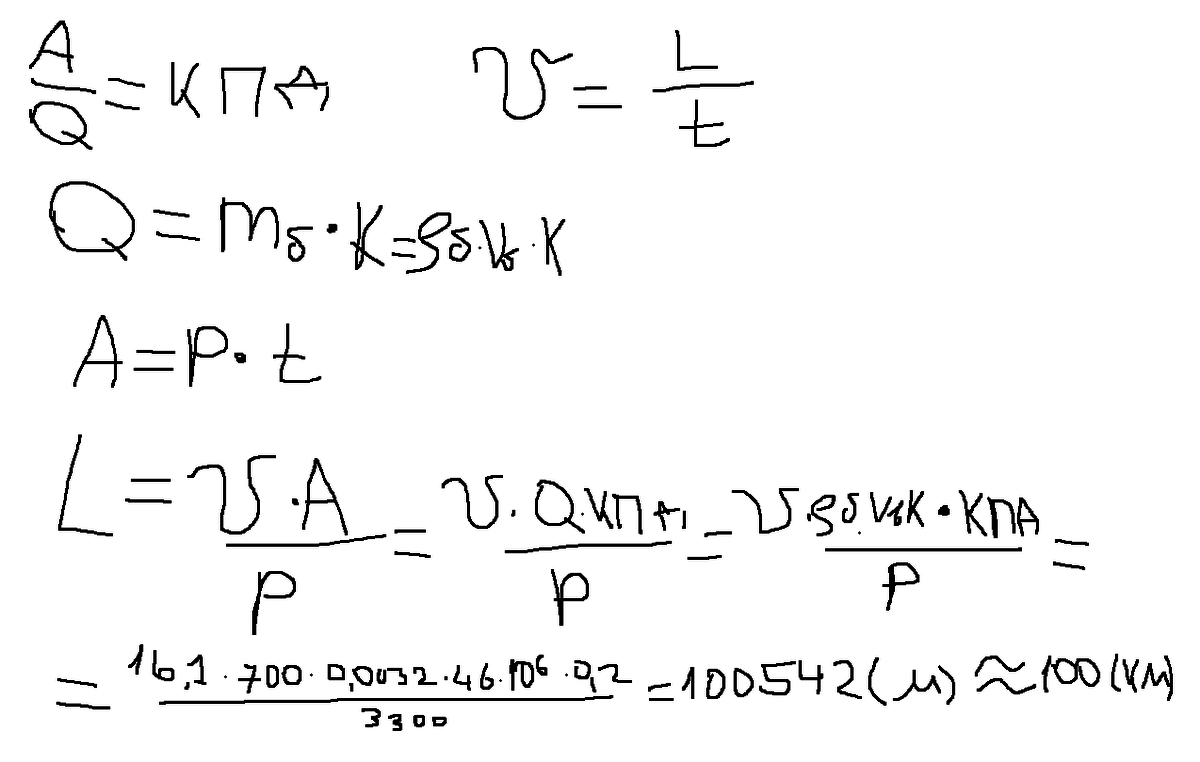 A/Q = КПД   v = L/t
Q = mб · K = ρб · Vб · K
A = P · t
L = v · A / P = v · Q · КПД / P = v · ρб · Vб K · КПД / P =
= 16,1 · 700 · 0,0032 · 46 · 10⁶ · 0,2 / 3300 = 100542 (м) ≈ 100 (км)